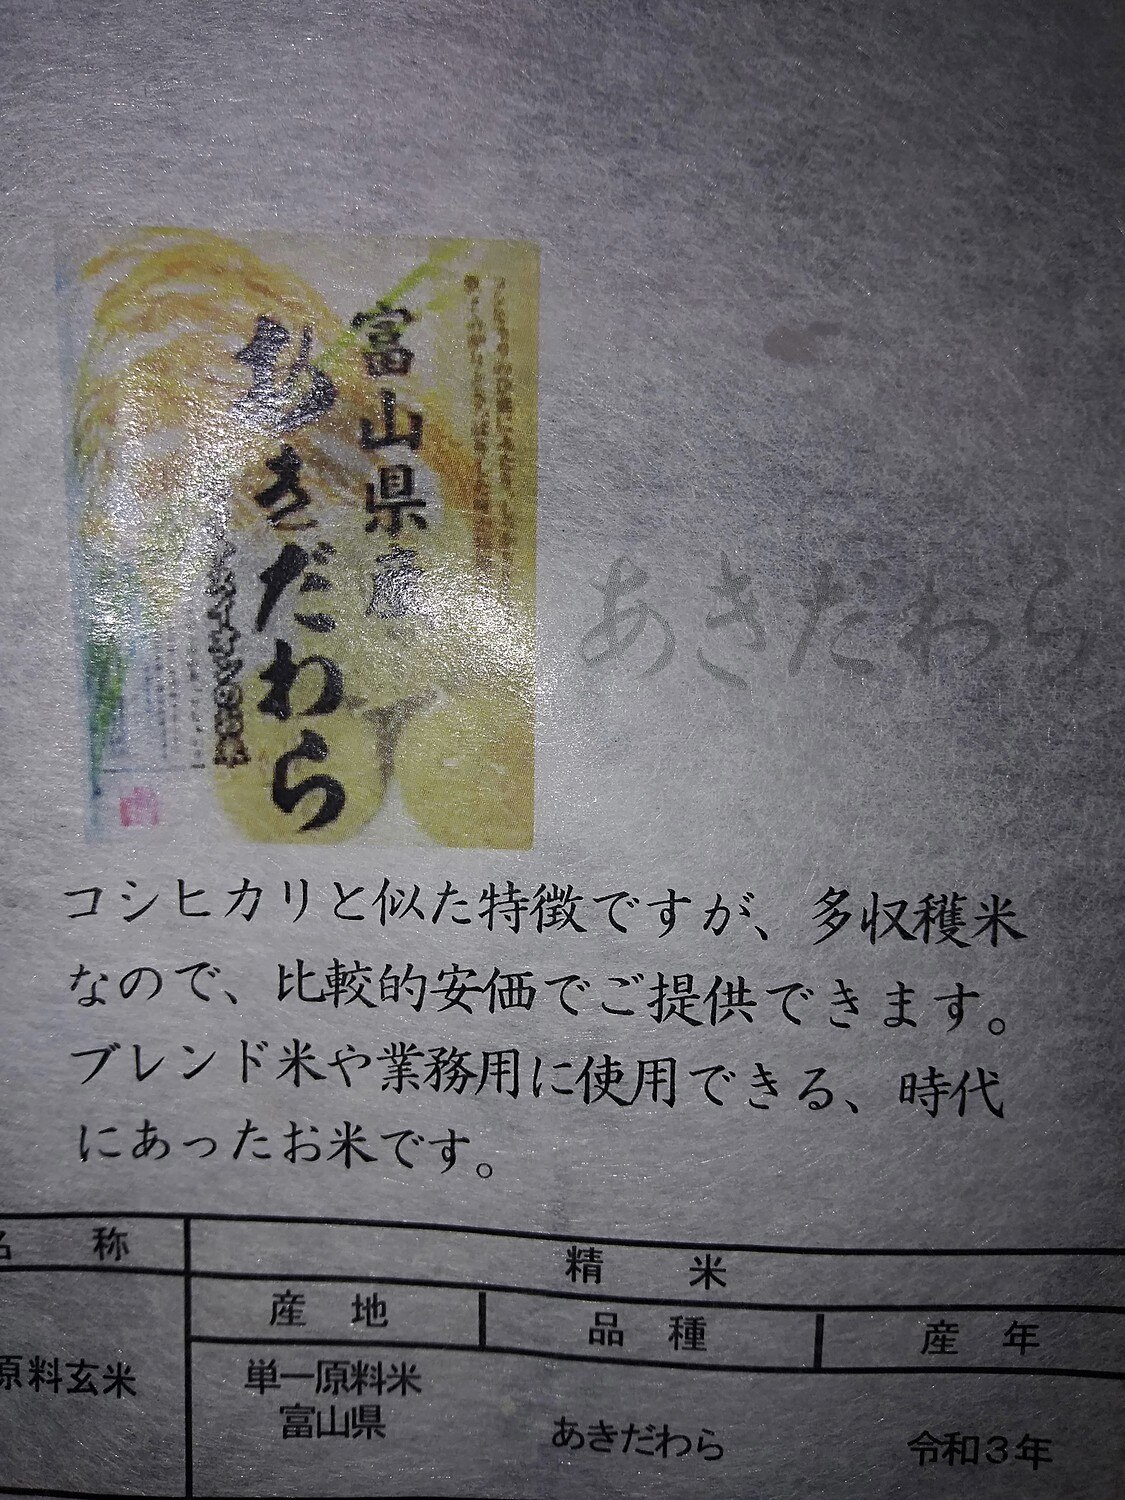 富山県産
あきだわら
あきだわら
コシヒカリと似た特徴ですが、多収穫米
なので、比較的安価でご提供できます。
ブレンド米や業務用に使用できる、時代
にあったお米です。
名 称
精 米
産 地
品 種
産 年
原料玄米
単一原料米
富山県
あきだわら
令和3年